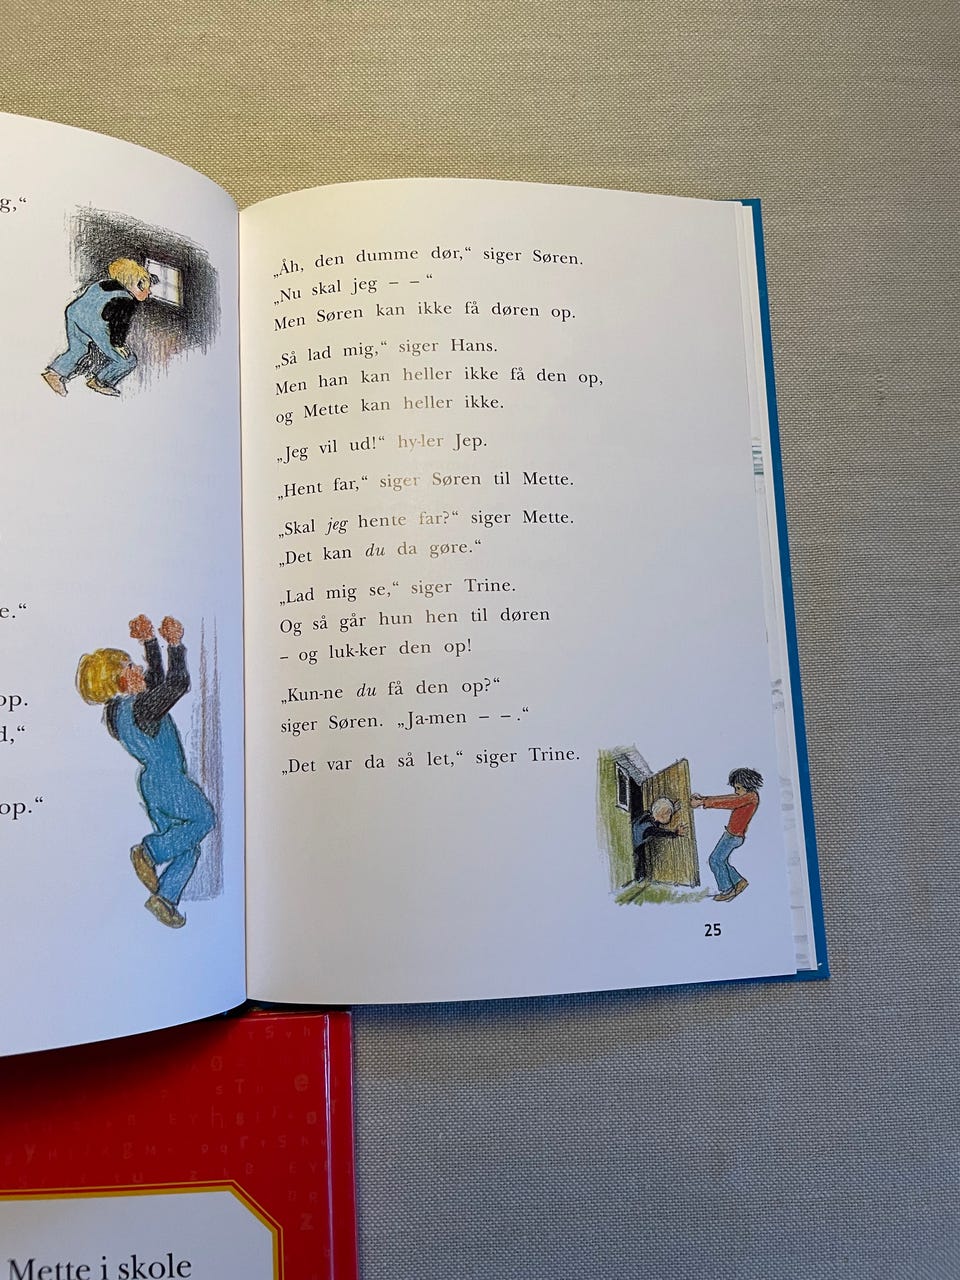 g,“
e.“
op.
d,“
op.“
„Åh, den dumme dør,“ siger Søren.
„Nu skal jeg – – “
Men Søren kan ikke få døren op.
„Så lad mig,“ siger Hans.
Men han kan heller ikke få den op,
og Mette kan heller ikke.
„Jeg vil ud!“ hy-ler Jep.
„Hent far,“ siger Søren til Mette.
„Skal jeg hente far?“ siger Mette.
„Det kan du da gøre.“
„Lad mig se,“ siger Trine.
Og så går hun hen til døren
– og luk-ker den op!
„Kun-ne du få den op?“
siger Søren. „Ja-men – – .“
„Det var da så let,“ siger Trine.
25
Mette i skole